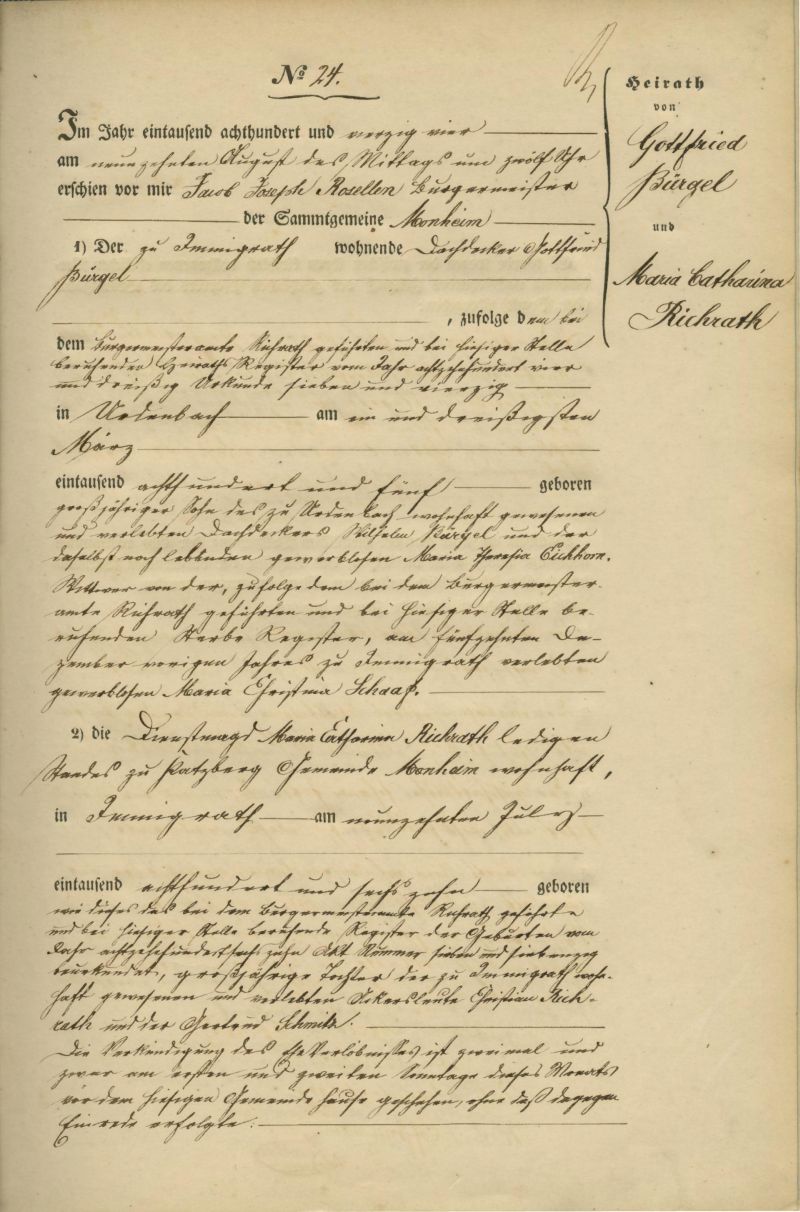 No 24.
Heirath
von
Gottfried
Bürgel
und
Maria Catharina
Richrath
Im Jahr eintausend achthundert und vierzig vier
am neunzehnten August des Mittags um zwölf Uhr
erschien vor mir Jacob Joseph Rosellen Burgermeister
der Sammtgemeine Monheim
1) Der zu Immigrath wohnende Dachdecker Gottfried
Bürgel
, zufolge dem bei
dem Burgermeisteramte Richrath geführten und bei hiesiger Stelle
beruhenden Heiraths Register vom Jahr achtzehnhundert vier
und dreißig Urkunde sieben und vierzig
in Urdenbach am ein und dreißigsten
März
eintausend achthundert und fünf geboren
großjähriger Sohn des zu Urdenbach wohnhaft gewesenen
und verlebten Dachdeckers Wilhelm Bürgel und der
daselbst noch lebenden gewerblosen Maria Theresia Eickhorn.
Wittwer von der, zufolge dem bei dem Burgermeister-
amte Richrath geführten und bei hiesiger Stelle be-
ruhenden Sterbe Register, am fünfzehnten De-
zember vorigen Jahres zu Immigrath verlebten
gewerblosen Maria Christina Schaaf.
2) die Dienstmagd Maria Catharina Richrath ledigen
Standes zu Katzberg Gemeinde Monheim wohnhaft,
in Immigrath am neunzehnten July
eintausend achthundert und sechszehn geboren
wie dieses das bei dem Burgermeisteramte Richrath geführte
und bei hiesiger Stelle beruhende Register der Geburten vom
Jahr achtzehnhundert sechszehn Akt Nummer sieben und siebenzig
beurkundet, großjährige Tochter der zu Immigrath wohn-
haft gewesenen und verlebten Ackersleute Christian Rich-
rath und der Gertrud Schmitz.
Die Verkündigung des Eheverlöbnisses ist zweimal und
zwar am ersten und zweiten Sonntage dieses Monats
vor dem hiesigen Gemeinde Hause geschehen, ohne daß dagegen
Einrede erfolgte.